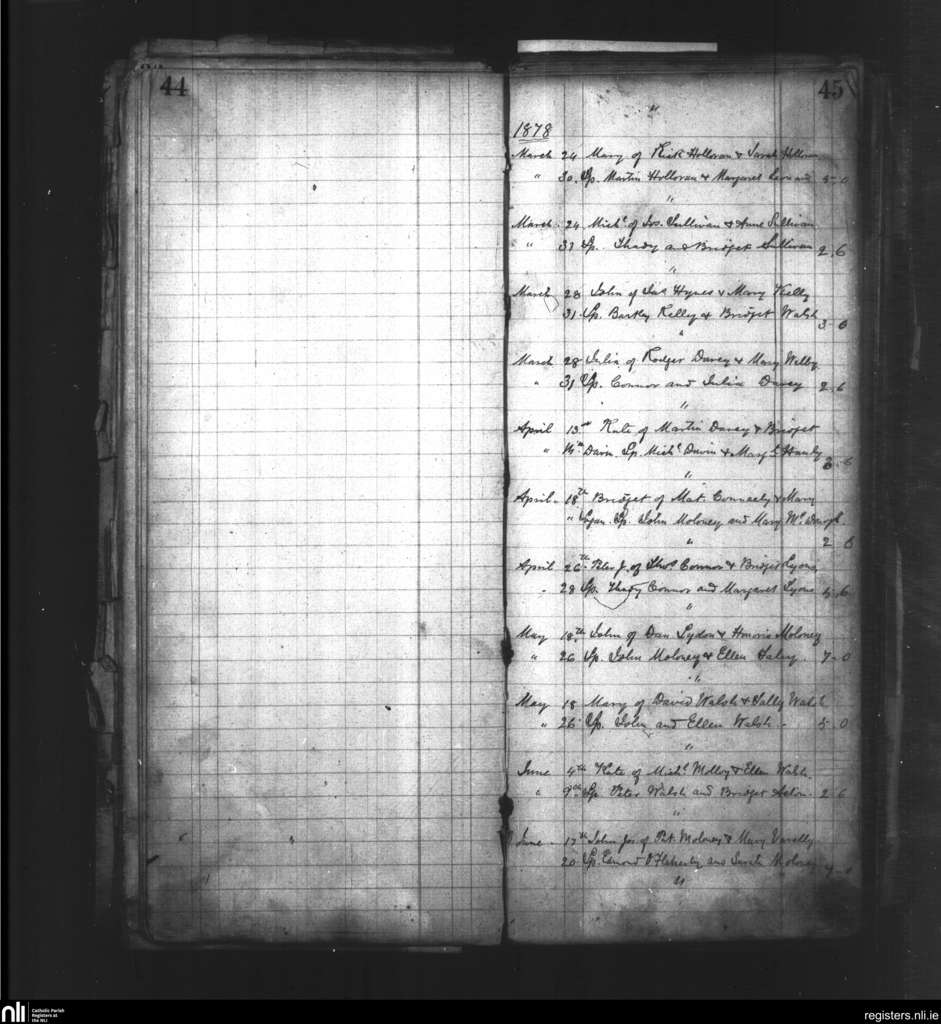 44
45
"
1878
March 24 Mary of Rick Holloran & Sarah Holloran
" 30. Sp. Martin Holloran & Margaret 5-0
"
March. 24 Michl of Jos. Sullivan & Anne Sullivan
" " 31 Sp. Thady and Bridget Sullivan 2.6
"
March 28 John of Jas Hynes & Mary Kelly
31. Sp. Bartley Kelly & Bridget Walsh 3-0
"
March 28 Julia of Rodger Davey & Mary
" 31 Sp. Connor and Julia Davey 2.6
"
April 13th Kate of Martin Davey & Bridget
" 14th Davin. Sp. Michl Davin & Mary Hanly
"
April. 18th Bridget of Mat. Conneely & Mary
" Sp. John Moloney and Mary McDonogh.
" 2 6
April 26th Peter J. of Thos Connor & Bridget Lyons,
" 28 Sp. Thady Connor and Margaret Lyons 5.6
"
May 18th John of Dan Lydon & Honoria Moloney
" 26 Sp. John Moloney & Ellen 7-0
"
May 18 Mary of David Walsh & Sally Walsh
" 26 Sp. John and Ellen Walsh - 5.0
"
June 4th Kate of Michl Molloy & Ellen Walsh.
" 9th Sp. Peter Walsh and Bridget 2.6
"
June - 17th John Jos. of Pat. Moloney & Mary Varelly
20 Sp. Edmond O'Flaherty and Sarah Moloney
"
nli Catholic Parish
Registers at
the NLI
registers.nli.ie